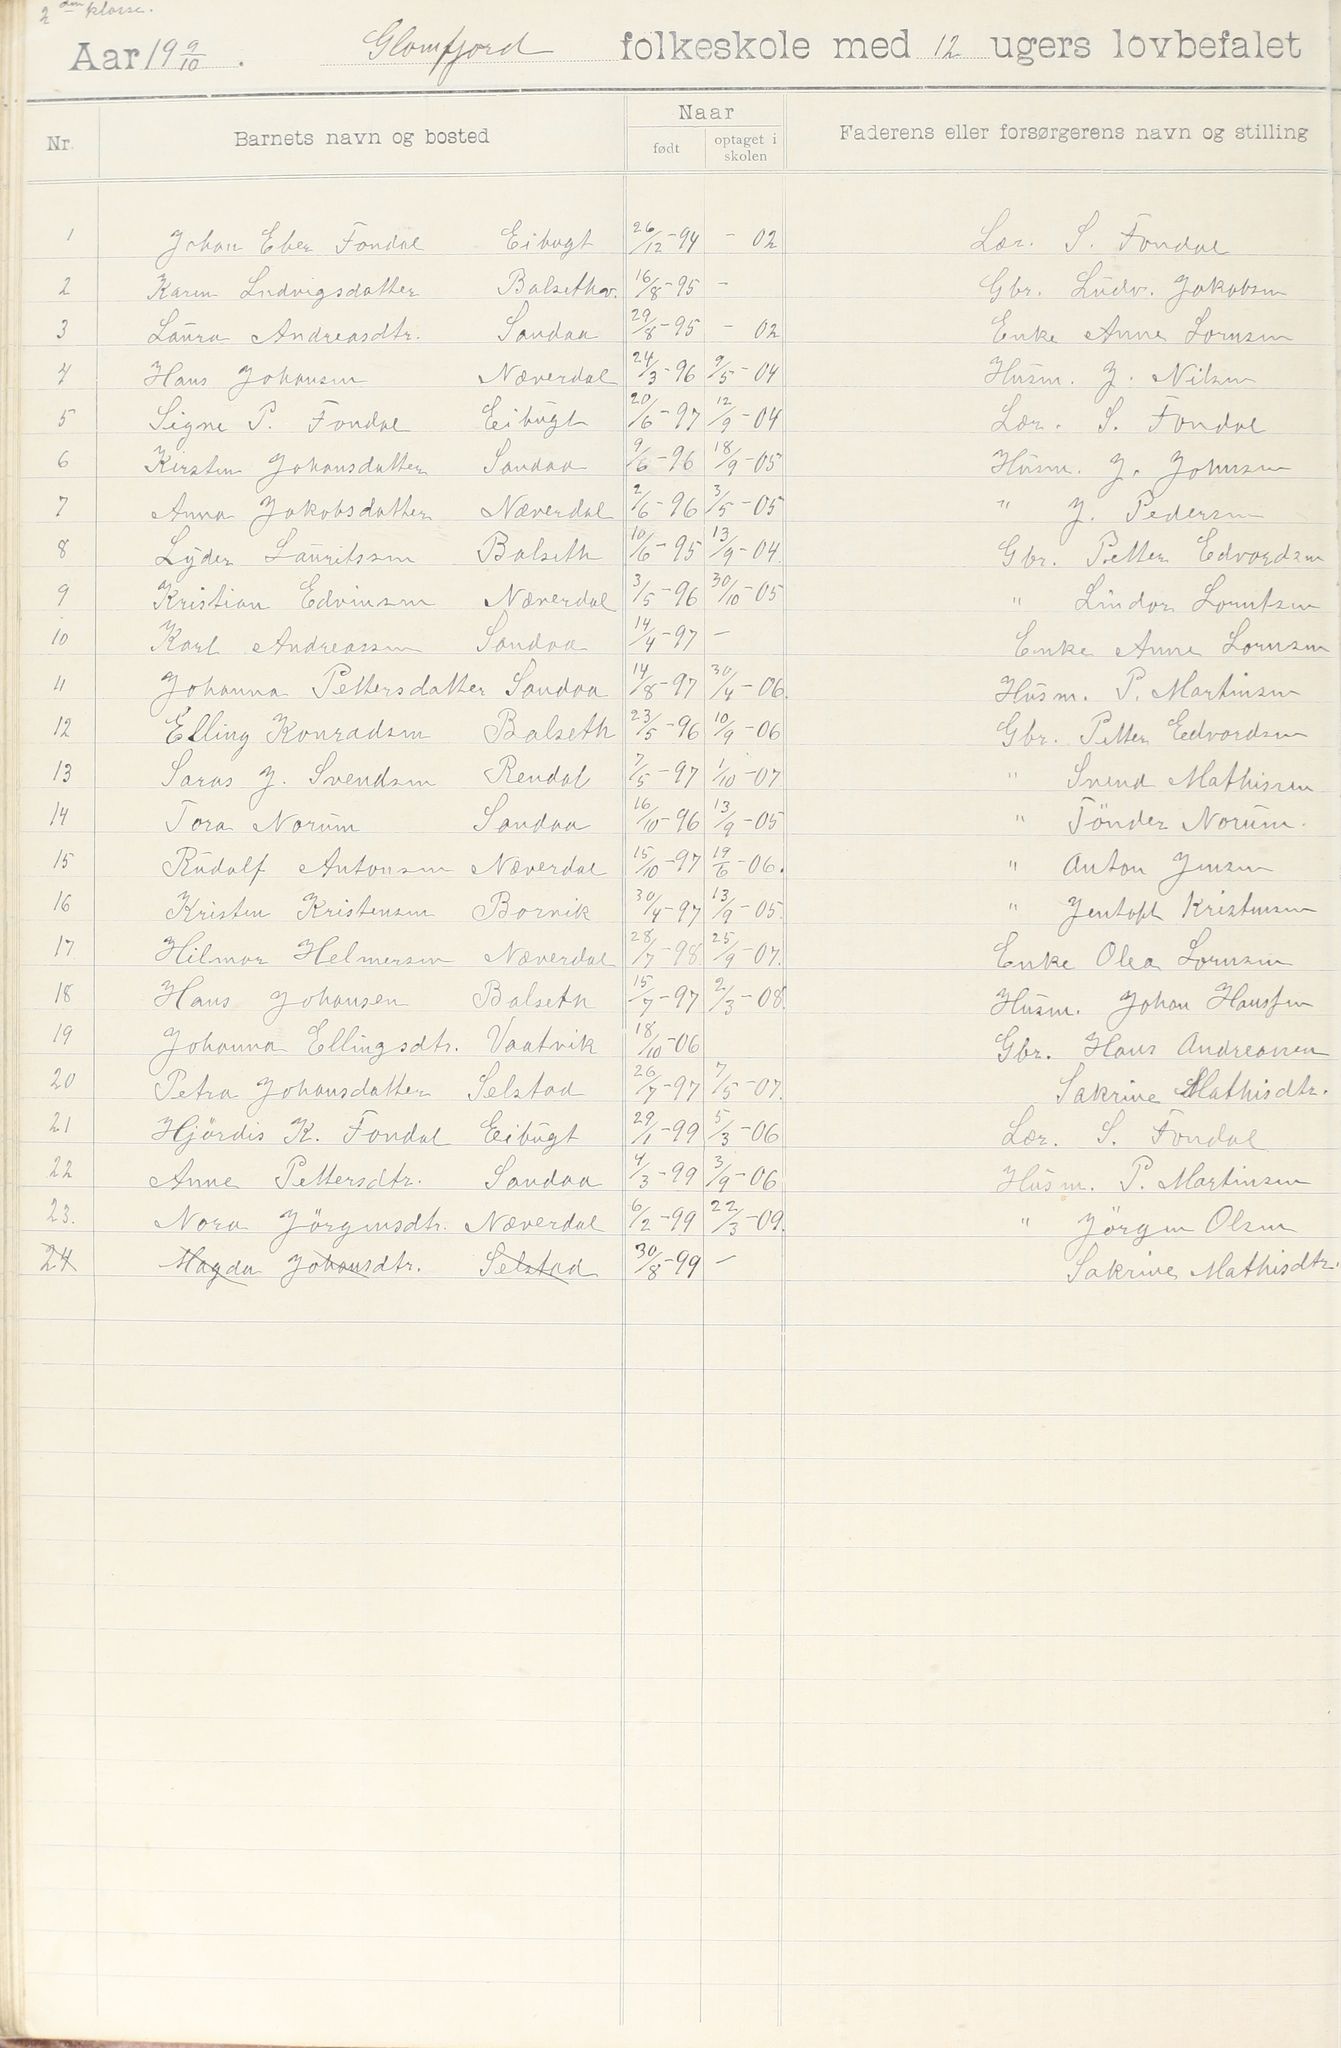 2den klasse.
Aar 19 9/10. Glomfjord folkeskole med 12 ugers lovbefalet
Nr. Barnets navn og bosted Naar Faderens eller forsørgerens navn og stilling
født optaget i skolen
1 Johan Eber Fondal Eibugt 26/12-94 - 02 Lær. S. Fondal
2 Karen Ludvigsdatter Balsethv. 16/8-95 - Gbr. Ludv. Jakobsen
3 Laura Andreasdtr. Sandaa 29/8-95 - 02 Enke Anne Lornsen
4 Hans Johansen Næverdal 24/3-96 9/5-04 Husm. J. Nilsen
5 Signe P. Fondal Eibugt 20/6-97 12/9-04 Lær. S. Fondal
6 Kirsten Johansdatter Sandaa 9/6-96 18/9-05 Husm. J. Johnsen
7 Anna Jakobsdatter Næverdal 2/6-96 3/5-05 " J. Pedersen
8 Lyder Lauritssen Balseth 10/6-95 13/9-04. Gbr. Petter Edvardsen
9 Kristian Edvinsen Næverdal 3/5-96 30/10-05 " Lindor Lorntsen
10 Karl Andreassen Sandaa 14/4-97 - Enke Anne Lornsen
11 Johanna Pettersdatter Sandaa 14/8-97 30/4-06. Husm. P. Martinsen
12 Elling Konradsen Balseth 23/5-96 10/9-06 Gbr. Petter Edvardsen
13 Saras J. Svendsen Rendal 7/5-97 1/10-07 " Svend Mathissen
14 Tora Norum Sandaa 16/10-96 13/9-05 " Tönder Norum.
15 Rudolf Antonsen Næverdal 15/10-97 19/6-06. " Anton Jensen
16 Kristen Kristensen Bornik 30/4-97 13/9-05. " Jentoft Kristensen
17 Hilmar Helmersen Næverdal 28/7-98 25/9-07. Enke Olea Lornsen
18 Hans Johansen Balseth 15/7-97 2/3-08. Husm. Johan Hansen
19 Johanna Ellingsdtr. Vaatvik 18/10-06 Gbr. Hans Andreassen
20 Petra Johansdatter Selstad 26/7-97 7/5-07. Sakrine Mathisdtr.
21 Hjördis K. Fondal Eibugt 29/1-99 5/3-06 Lær. S. Fondal
22 Anne Pettersdtr. Sandaa 4/3-99 3/9-06 Husm. P. Martinsen
23. Nora Jörgensdtr. Næverdal 6/2-99 22/3-09. " Jörgen Olsen
24 Magda Johansdtr. Selstad 30/8-99 - Sakrine Mathisdtr.